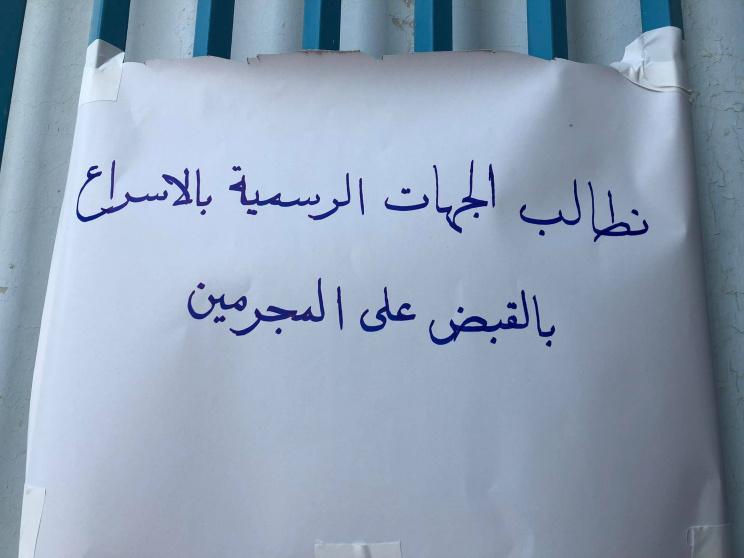 نطالب الجهات الرسمية بالاسراع
بالقبض على المجرمين